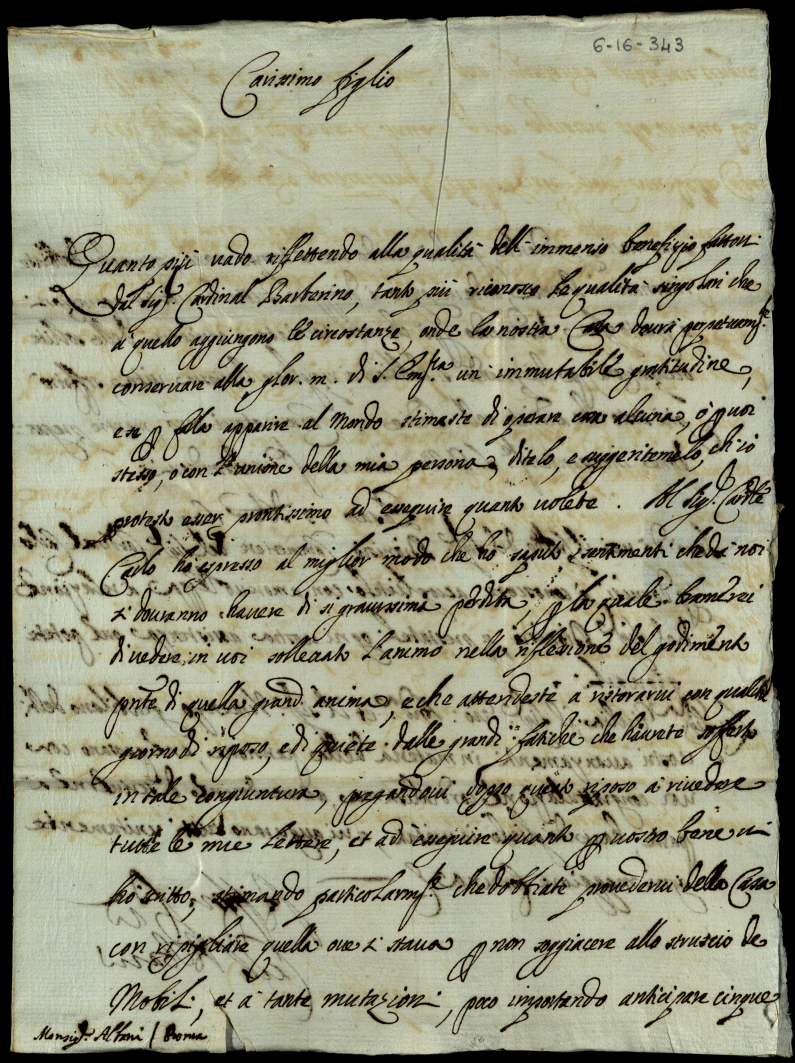 6-16-343
Carissimo figlio
Quanto più vado riflettendo alla qualità dell'immenso benefizio fattovi
dal Sig.r Cardinal Barberino, tanto più riconosco le qualità singolari che
a quello aggiungono le circostanze, onde la nostra Casa dovrà perpetuam.te
conservare alla glor. m. di S. Em.za un immutabile gratitudine,
e se p farla apparire al Mondo stimaste di operare cosa alcuna, ò p voi
stesso, ò con l'unione della mia persona, ditelo, e suggeritemelo, ch'io
protesto esser prontissimo ad eseguire quanto volete. Al Sig.r Card.le
Carlo ho espresso al miglior modo che ho saputo i sentimenti che dà noi
si dovranno havere di sì gravissima perdita, p la quale bramerei
di vedere in voi sollevato l'animo nella riflessione del godimento
pnte di quella grand'anima, e che attendeste à ristorarvi con qualche
giorno di riposo, e di quiete dalle grandi fatiche che havrete sofferto
in tale congiuntura, pregandovi doppo questo riposo à rivedere
tutte le mie lettere, et ad eseguire quanto p vostro bene vi
hò scritto, stimando particolarm.te che dobbiate provedervi della Casa
con ripigliare quella ove si stava p non soggiacere allo struscio de
Mobili, et à tante mutazioni, poco importando anticipare cinque
Monsig.r Albani / Roma